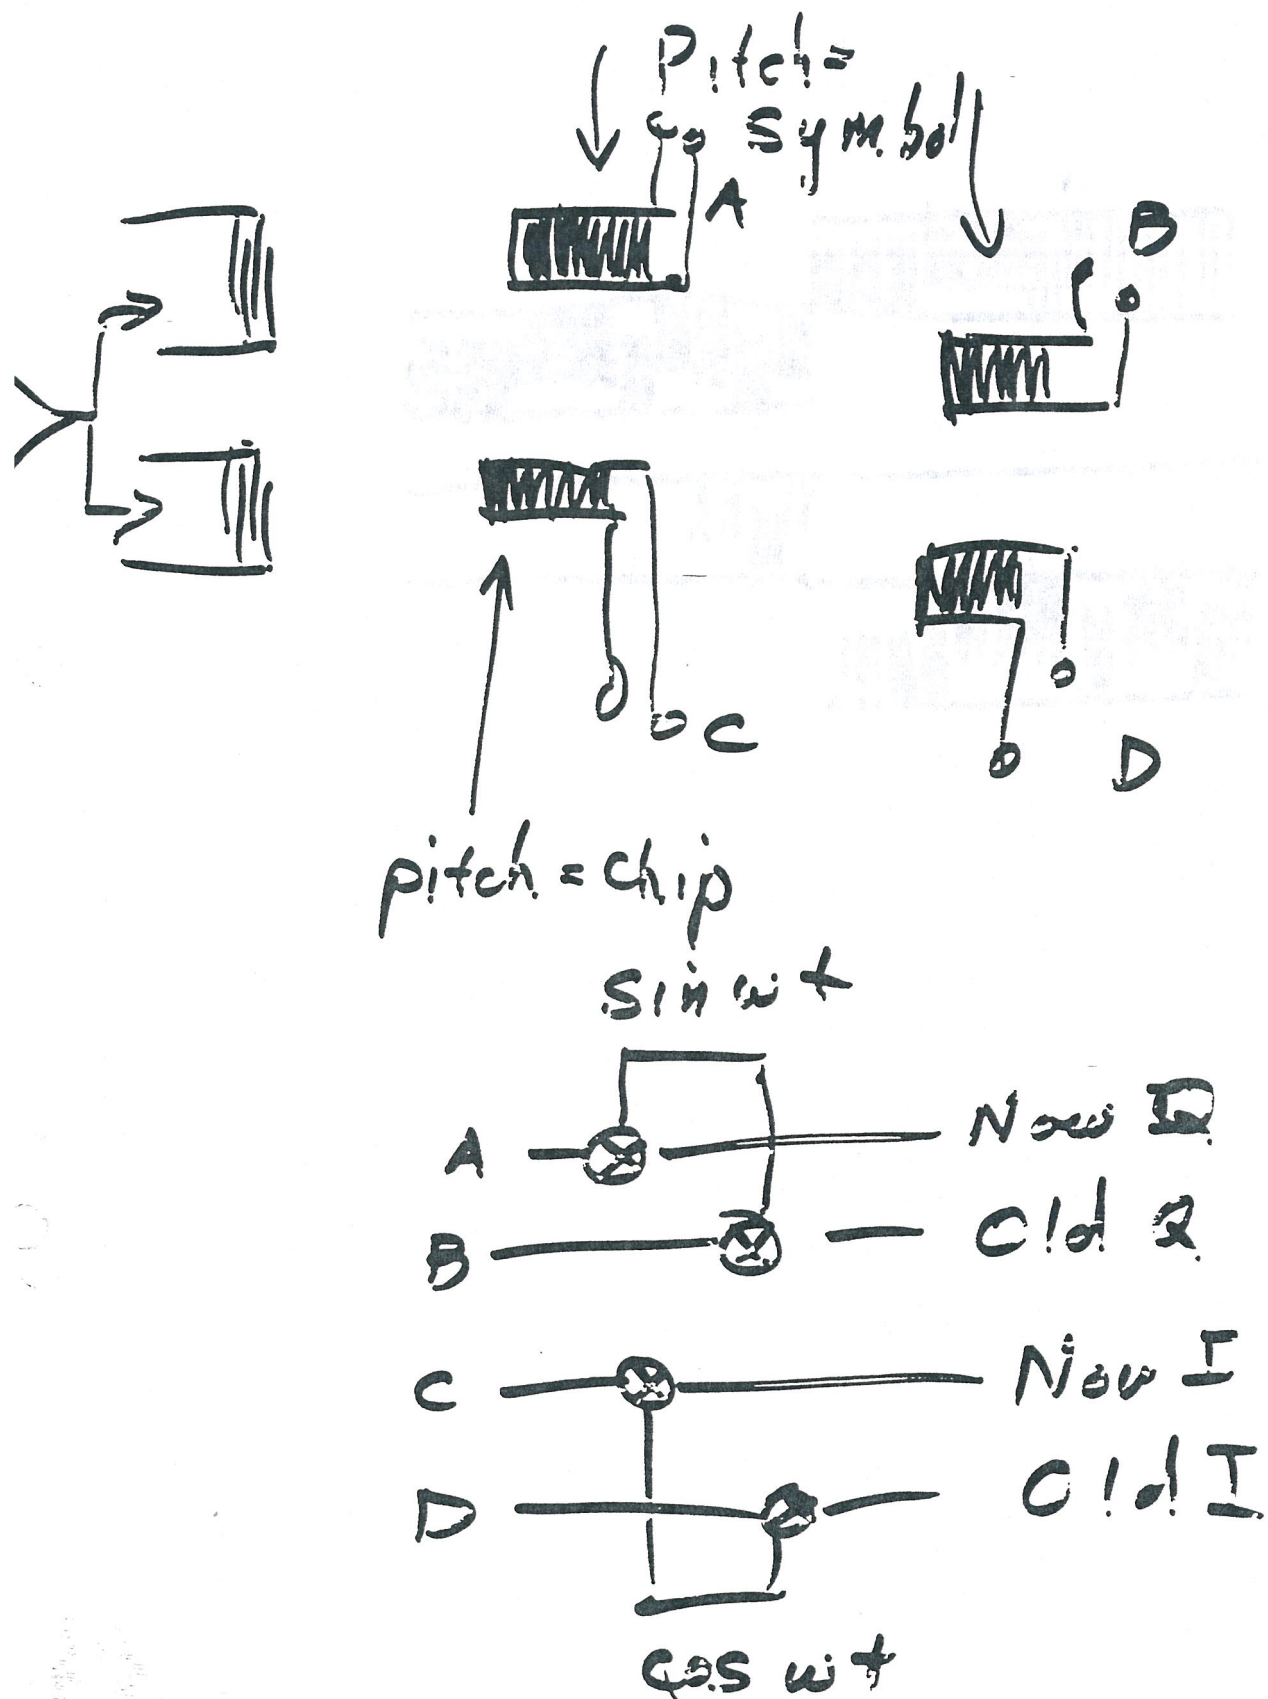 Pitch=
Symbol
A
B
C
D
pitch = Chip
sin wt
A
Now Q
B
Old Q
C
Now I
D
Old I
cos wt